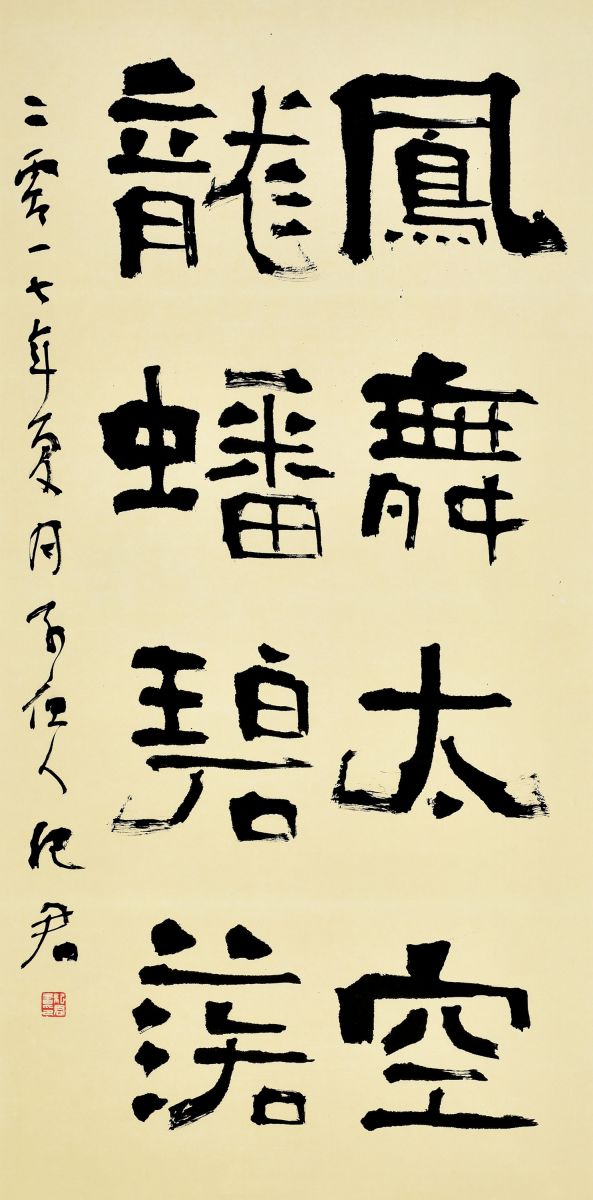 鳳舞太空
龍蟠碧落
二零一七年夏月 人 君